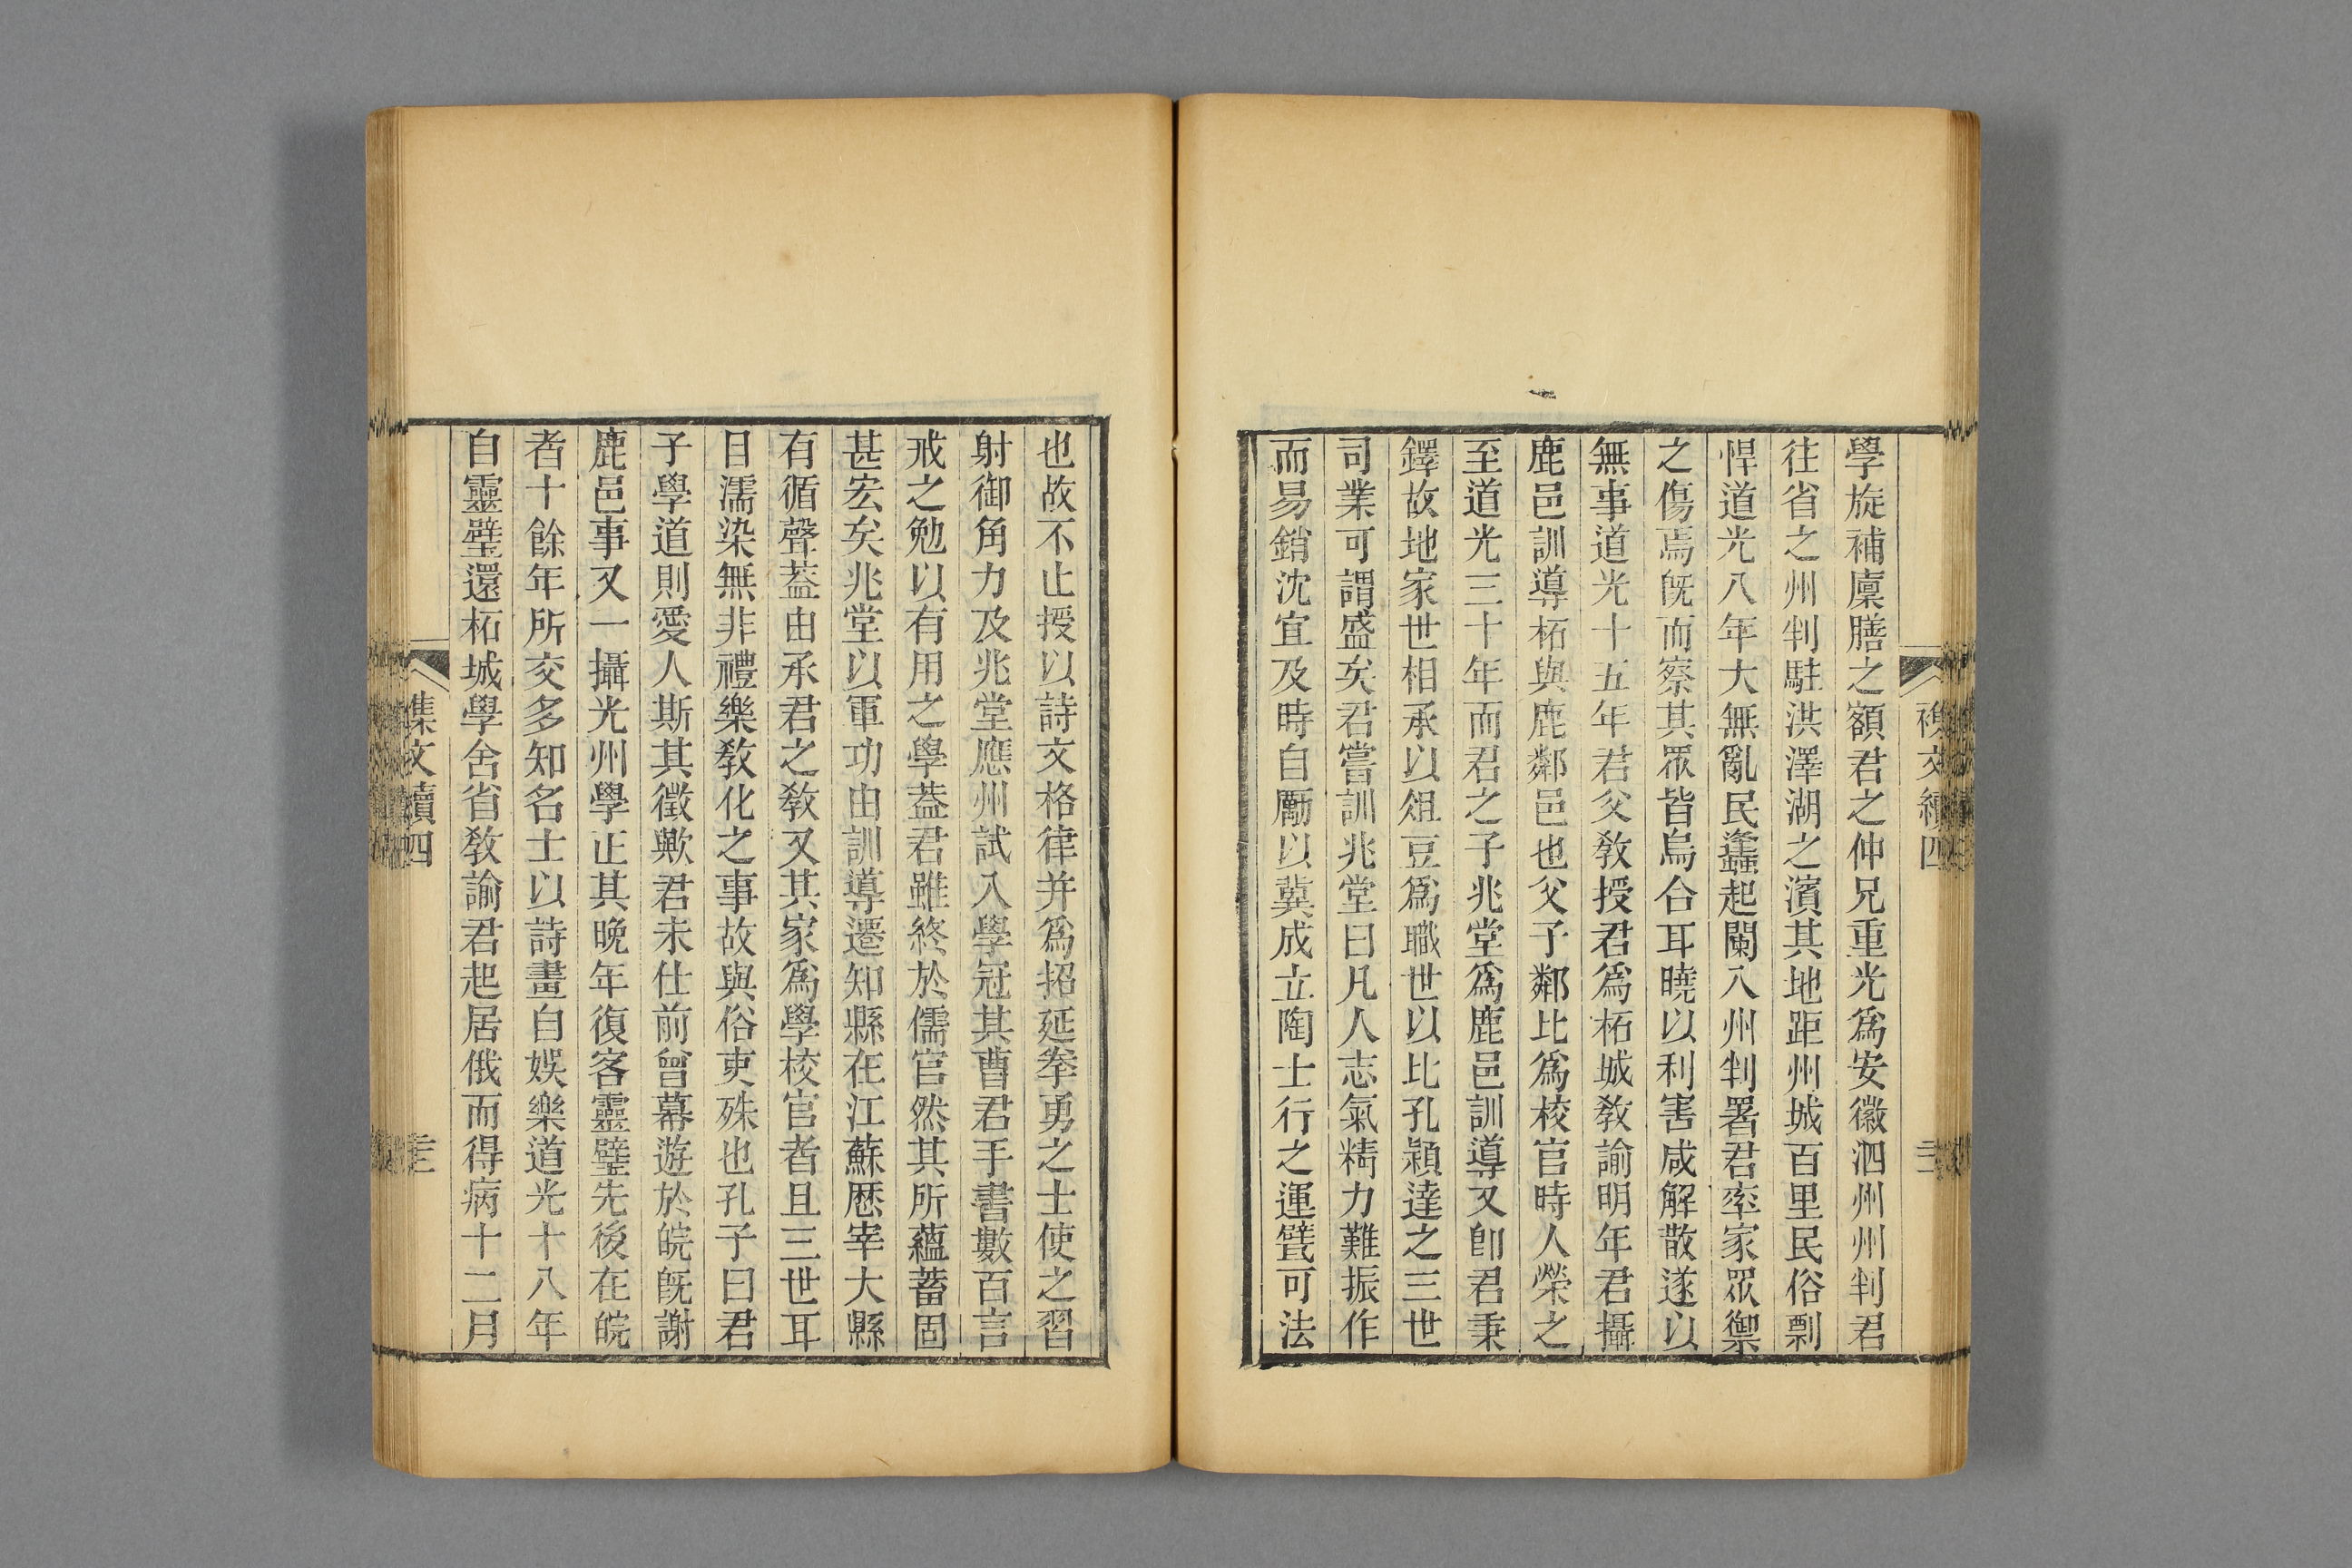 學旋補廩膳之額君之仲兄重光爲安徽泗州州判君
往省之州判駐洪澤湖之濱其地距州城百里民俗剽
悍道光八年大無亂民蠭起闌入州判署君率家眾禦
之傷焉旣而察其眾皆烏合耳曉以利害咸解散遂以
無事道光十五年君父敎授君爲柘城敎諭明年君攝
鹿邑訓導柘與鹿鄰邑也父子鄰比爲校官時人榮之
至道光三十年而君之子兆堂爲鹿邑訓導又卽君秉
鐸故地家世相承以俎豆爲職世以比孔穎達之三世
司業可謂盛矣君嘗訓兆堂曰凡人志氣精力難振作
而易銷沈宜及時自勵以冀成立陶士行之運甓可法
也故不止授以詩文格律并爲招延拳勇之士使之習
射御角力及兆堂應州試入學冠其曹君手書數百言
戒之勉以有用之學葢君雖終於儒官然其所蘊蓄固
甚宏矣兆堂以軍功由訓導遷知縣在江蘇厯宰大縣
有循聲葢由承君之敎又其家爲學校官者且三世耳
目濡染無非禮樂敎化之事故與俗吏殊也孔子曰君
子學道則愛人斯其徵歟君未仕前曾幕遊於皖旣謝
鹿邑事又一攝光州學正其晚年復客靈璧先後在皖
者十餘年所交多知名士以詩畫自娛樂道光十八年
自靈璧還柘城學舍省敎諭君起居俄而得病十二月